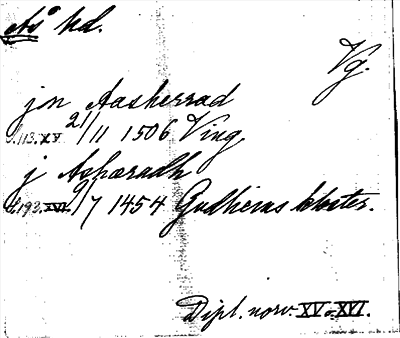 Ås hd.
Vg.
jn Aasherrad
s. 113. XV 21/11 1506 Ving
j Asharadh
s. 193. XVI. 9/7 1454 Gudhems kloster.
Dipl. norv. XV o. XVI.